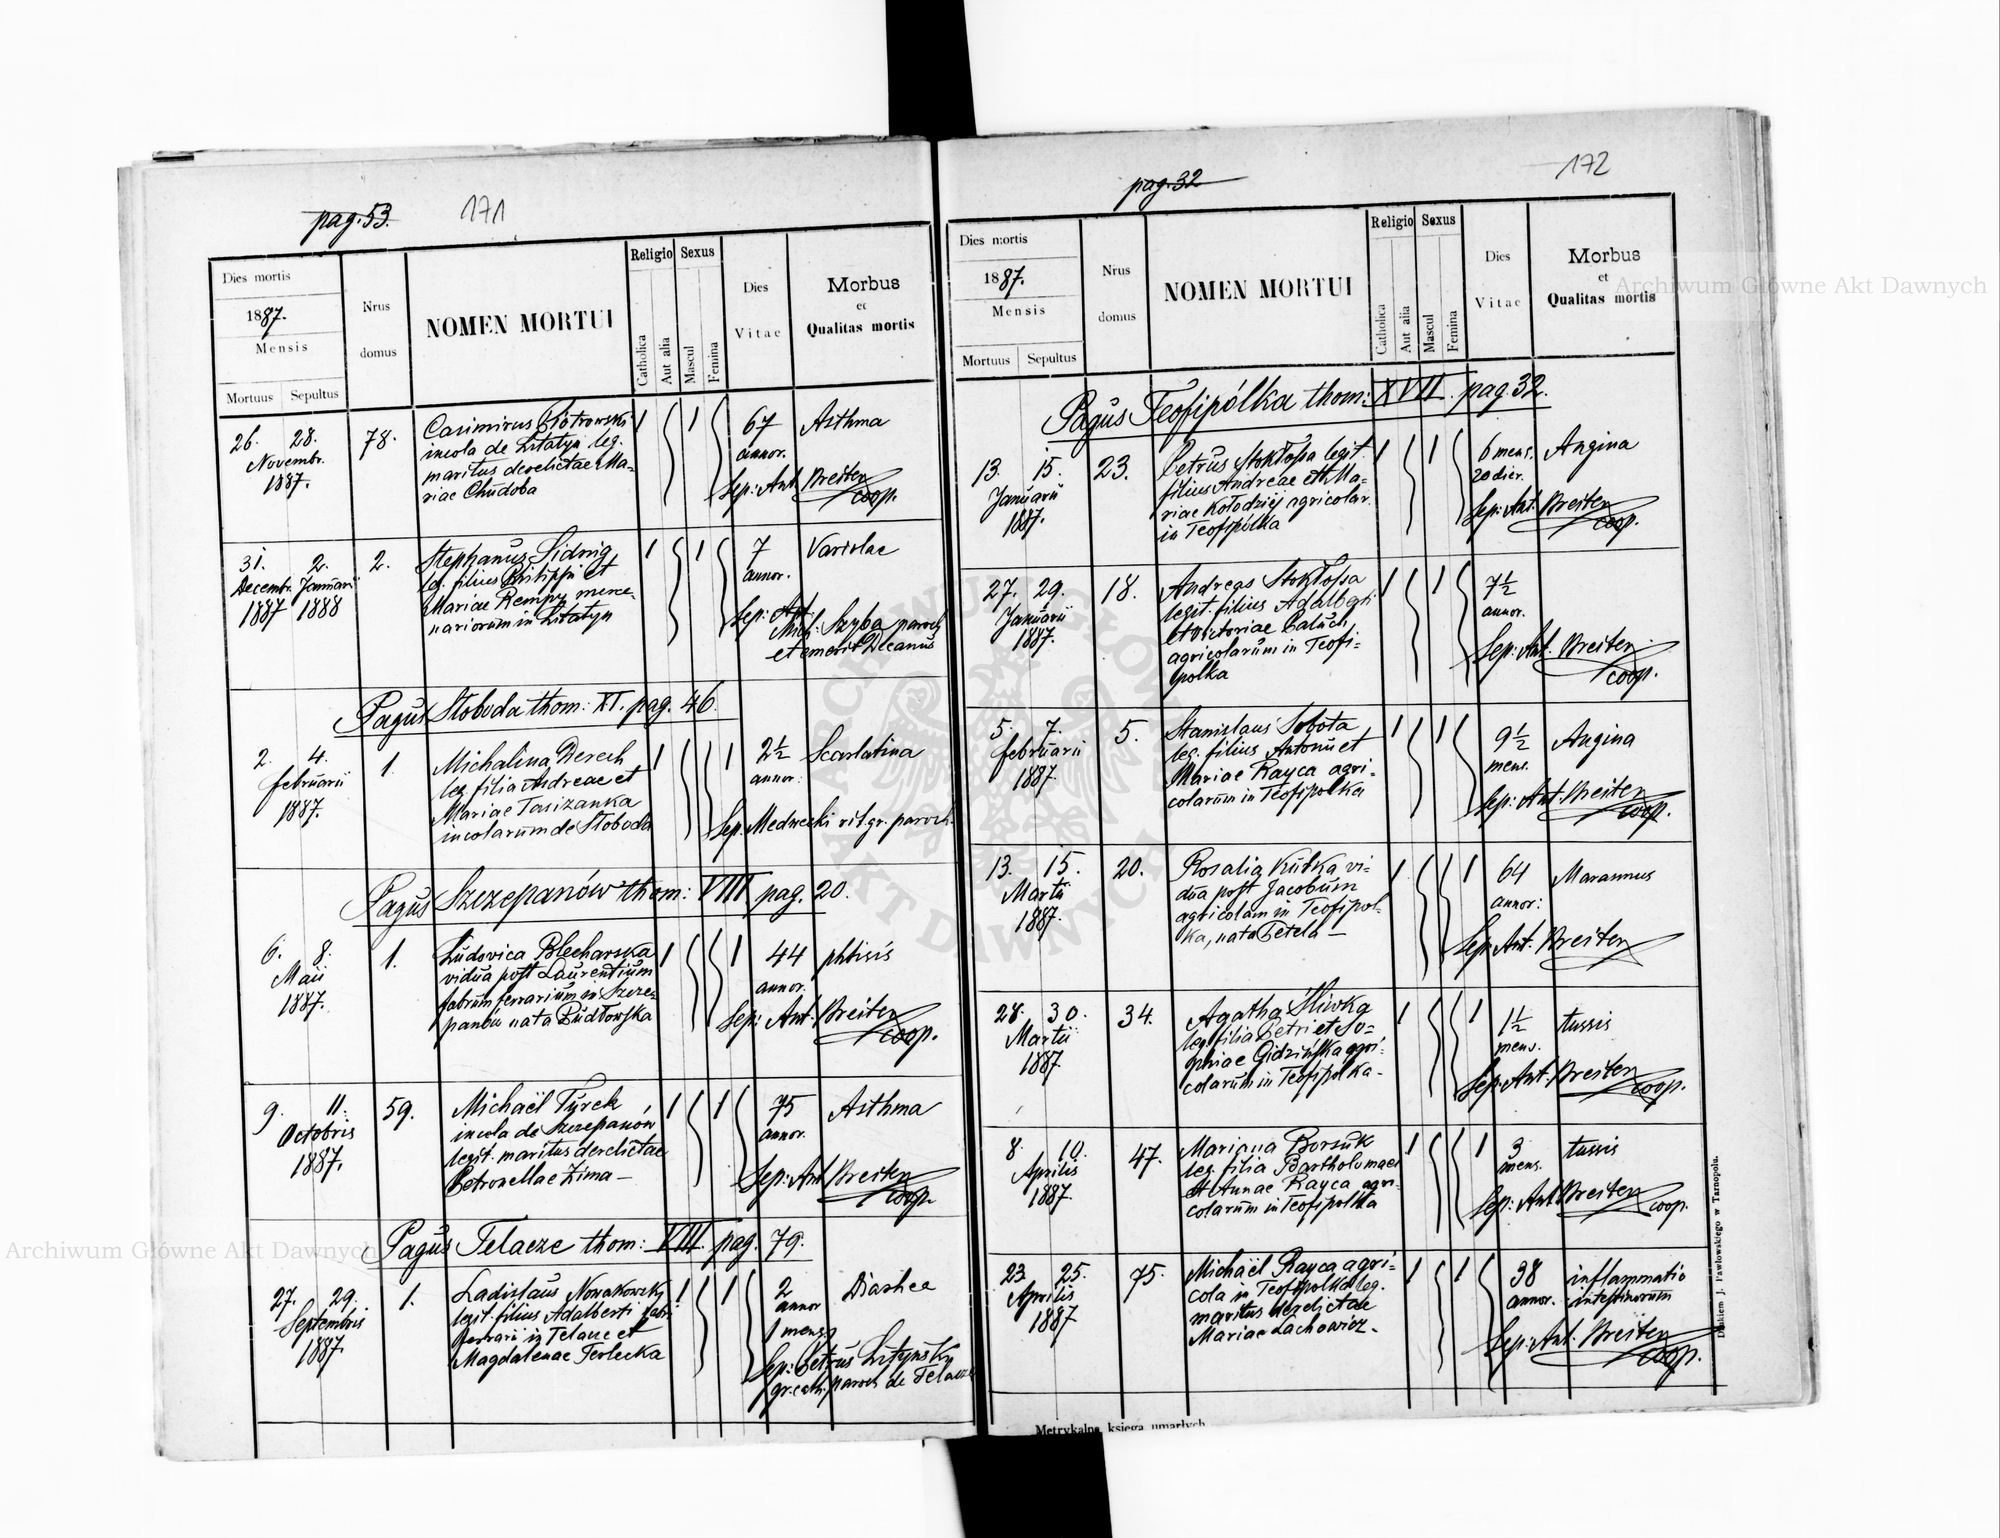 pag. 53.
171
Dies mortis
1887.
Mensis
Mortuus
Sepultus
Nrus
domus
NOMEN MORTUI
Religio
Catholica
Aut alia
Sexus
Mascul
Femina
Dies
Vitae
Morbus
et
Qualitas mortis
26. 28.
Novembr.
1887.
78.
Casimirus Piotrowski
incola de Litatyn leg.
maritus derelictae Ma-
riae Chudoba
1
1
67
annor.
Asthma
Sep: Ant. Breiter
coop.
31. 2.
Decembr. Januarii
1887 1888
2.
Stephanus
leg. filius Philippi et
Mariae Rempy merce-
nariorum in Litatyn
1
1
7
annor.
Variolae
Sep: Ant:
Mich: Szyba paroch
et emerit Decanus
Pagus Słoboda thom: XI. pag. 46.
2. 4.
februarii
1887.
1.
Michalina Derech
leg. filia Andreae et
Mariae
incolarum de Słoboda
1
1
2½
annor.
Scarlatina
Sep. Mednecki rit. gr. paroch.
Pagus Szczepanów thom: VIII pag. 20.
6. 8.
Maii
1887.
1.
Ludovica Blecharska
vidua post Laurentium
fabrum ferrarium in Szcze-
panów nata Budłowska
1
1
44
annor.
phtisis
Sep: Ant. Breiter
coop.
9. 11.
Octobris
1887.
59.
Michaël Tyrek
incola de Szczepanów
legit. maritus derelictae
Petronellae Zima —
1
1
75
annor.
Asthma
Sep: Ant Breiter
coop.
Pagus Telacze thom: VIII. pag. 79.
27. 29.
Septembris
1887.
1.
Ladislaus Nowakowski
legit. filius Adalberti fabri
ferrarii in Telacze et
Magdalenae Terlecka
1
1
2
annor
1 mens
Diarhea
Sep: Petrus
gr. cath. paroch de Telacze
pag. 32
172
Dies mortis
1887.
Mensis
Mortuus
Sepultus
Nrus
domus
NOMEN MORTUI
Religio
Catholica
Aut alia
Sexus
Mascul
Femina
Dies
Vitae
Morbus
et
Qualitas mortis
Pagus Teofipólka thom: XVII. pag 32.
13. 15.
Januarii
1887.
23.
Petrus Stokłosa legit
filius Andreae et Ma-
riae Kołodziej agricolar.
in Teofipólka
1
1
6 mens.
20 dier.
Angina
Sep: Ant. Breiter
coop.
27. 29.
Januarii
1887.
18.
Andreas Stokłosa
legit. filius Adalberti
et Victoriae Paluch
agricolarum in Teofi-
polka
1
1
7½
annor.
Sep: Ant. Breiter
coop.
5. 7.
februarii
1887.
5.
Stanislaus Sobota
leg. filius Antonii et
Mariae Rayca agri-
colarum in Teofipolka
1
1
9½
mens.
Angina
Sep: Ant. Breiter
coop.
13. 15.
Martii
1887.
20.
Rosalia Kutka vi-
dua post Jacobum
agricolam in Teofipol-
ka, nata Petela —
1
1
64
annor:
Marasmus
Sep: Ant. Breiter
28. 30.
Martii
1887.
34.
Agatha Śliwka
leg. filia Petri et So-
phiae Gidzińska agri-
colarum in Teofipolka -
1
1
1½
mens.
tussis
Sep: Ant. Breiter
coop.
8. 10.
Aprilis
1887.
47.
Marianna Borsuk
leg. filia Bartholomaei
et Annae Rayca agri-
colarum in Teofipolka
1
1
3
mens.
tussis
Sep: Ant. Breiter
coop.
23. 25.
Aprilis
1887
75.
Michaël Rayca agri-
cola in Teofipolka leg.
maritus derelictae
Mariae Lachowicz -
1
1
38
annor.
inflammatio
intestinorum
Sep: Ant. Breiter
coop.
Drukiem J. Pawłowskiego w Tarnopolu.
Metrykalna księga umarłych
Archiwum Główne Akt Dawnych
Archiwum Główne Akt Dawnych
ARCHIWUM GŁÓWNE AKT DAWNYCH